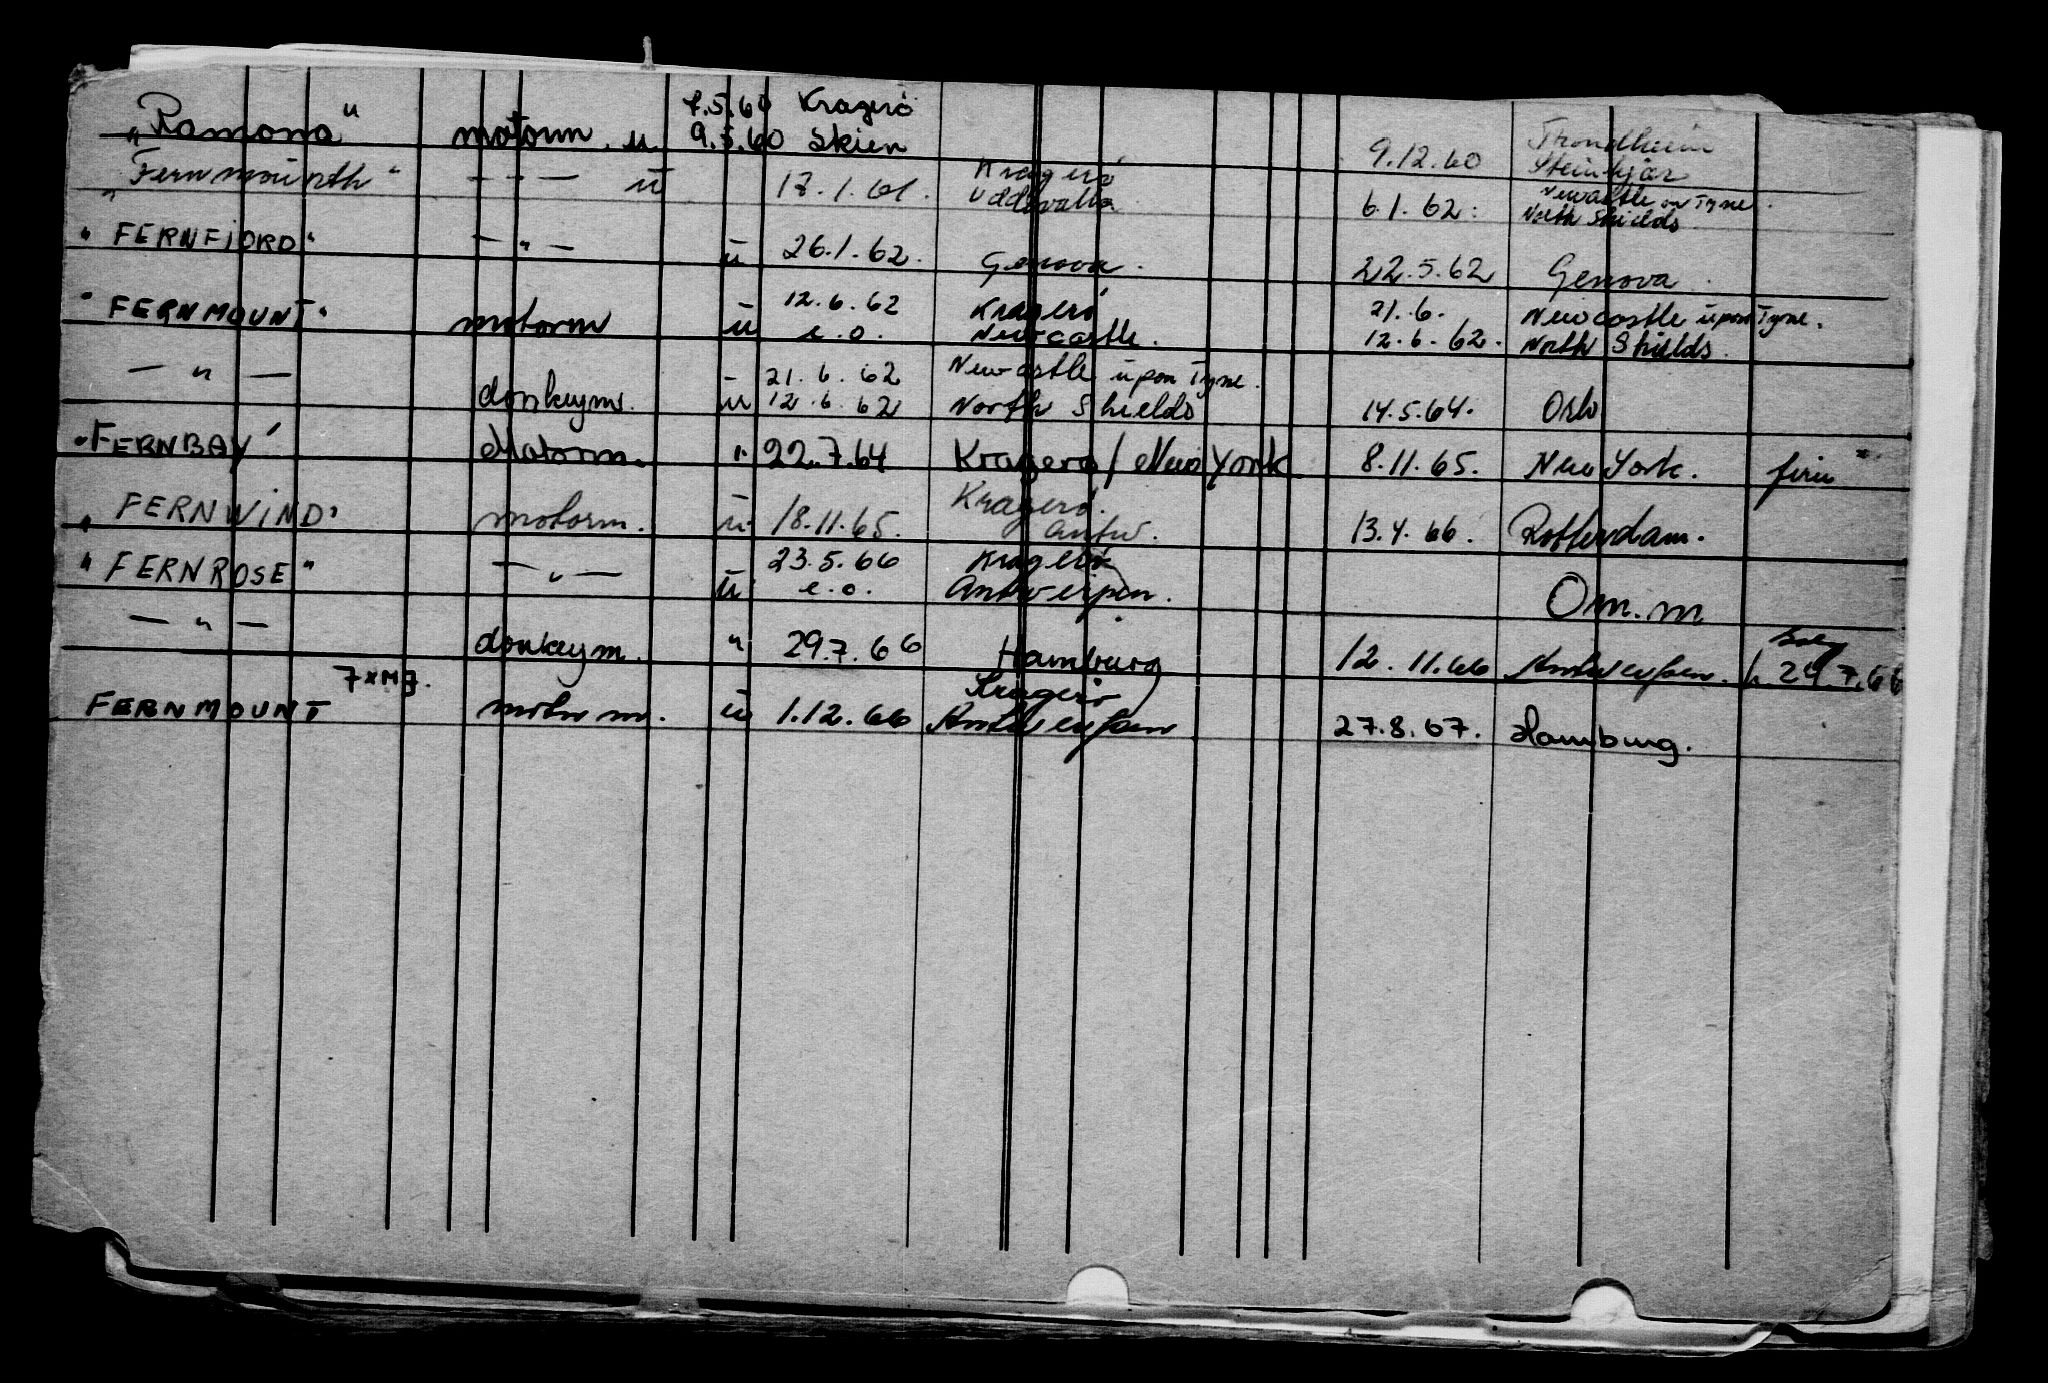 7.5.60 Kragerö
„Ramona" motorm. u. 9.5.60 Skien 9.12.60 Trondheim Steinkjær
„Fernmounth" — " — u 17.1.61. Kragerö Uddevalla 6.1.62. Newcastle on Tyne. North Shields
"FERNFJORD" — " — u 26.1.62. Genova. 22.5.62 Genova.
"FERNMOUNT" motorm u 12.6.62 Kragerö 21.6. Newcastle upon Tyne.
e.o. Newcastle. 12.6.62. North Shields.
— " — donkeym. u 21.6.62 Newcastle upon Tyne.
12.6.62 North Shields 14.5.64. Oslo
"FERNBAY" Motorm. " 22.7.64 Kragerö / New York 8.11.65. New York. ferie
„FERNWIND" motorm. u 18.11.65. Kragerö. Antw. 13.4.66. Rotterdam.
"FERNROSE" — " — u 23.5.66 Kragerö
e.o. Antwerpen. Om.m
— " — donkeym. " 29.7.66 Hamburg 12.11.66 Antwerpen. 29.7.66
7XM7.
FERNMOUNT motorm. u 1.12.66 Kragerö Antwerpen 27.8.67. Hamburg.